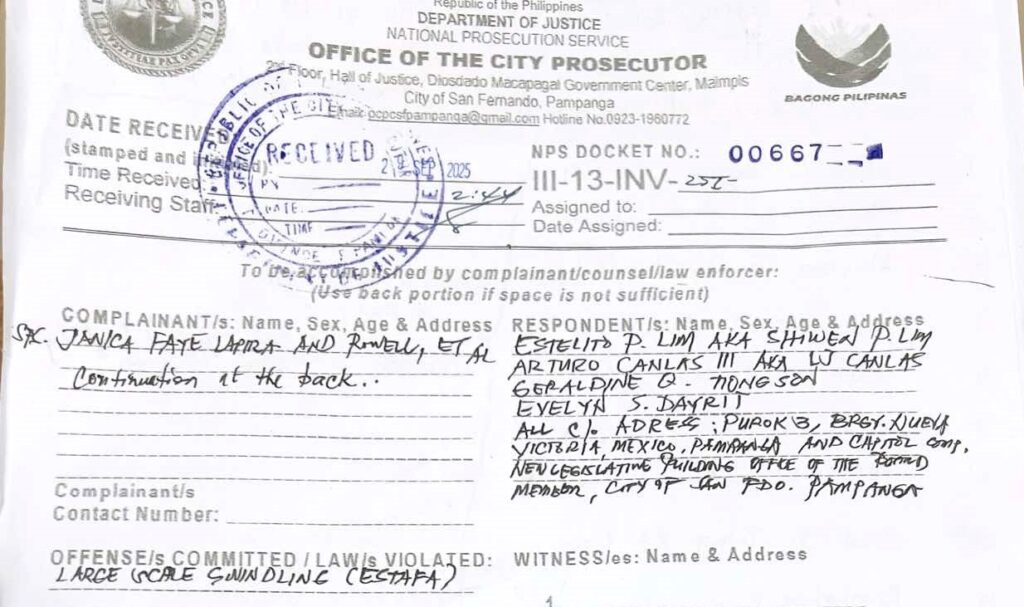 Republic of the Philippines
DEPARTMENT OF JUSTICE
NATIONAL PROSECUTION SERVICE
OFFICE OF THE CITY PROSECUTOR
2nd Floor, Hall of Justice, Diosdado Macapagal Government Center, Maimpis
City of San Fernando, Pampanga
Email: ocpcsfpampanga@gmail.com Hotline No.0923-1960772
BAGONG PILIPINAS
DATE RECEIVED
(stamped and
Time Received
Receiving Staff:
OFFICE OF THE CITY
RECEIVED
SEP 2025
BY
DATE
TIME
2:44
NPS DOCKET NO.: 00667
III-13-INV- 25I-
Assigned to:
Date Assigned:
To be accomplished by complainant/counsel/law enforcer:
(Use back portion if space is not sufficient)
COMPLAINANT/s: Name, Sex, Age & Address
JANICA FAYE LAPIRA AND ROWELL, ET AL
Continuation at the back..
Complainant/s
Contact Number:
RESPONDENT/s: Name, Sex, Age & Address
ESTELITO P. LIM AKA SHIWEN P. LIM
ARTURO CANLAS III AKA LJ CANLAS
GERALDINE Q. TIONGSON
EVELYN S. DAYRIT
ALL C/. ADRESS: PUROK 3, BRGY. NUEVA
VICTORIA, MEXICO, PAMPANGA AND CAPITOL COMP,
NEW LEGISLATIVE BUILDING OFFICE OF THE BOARD
MEMBER, CITY OF SAN FDO. PAMPANGA
OFFENSE/s COMMITTED / LAW/s VIOLATED:
LARGE SCALE SWINDLING (ESTAFA)
WITNESS/es: Name & Address
1